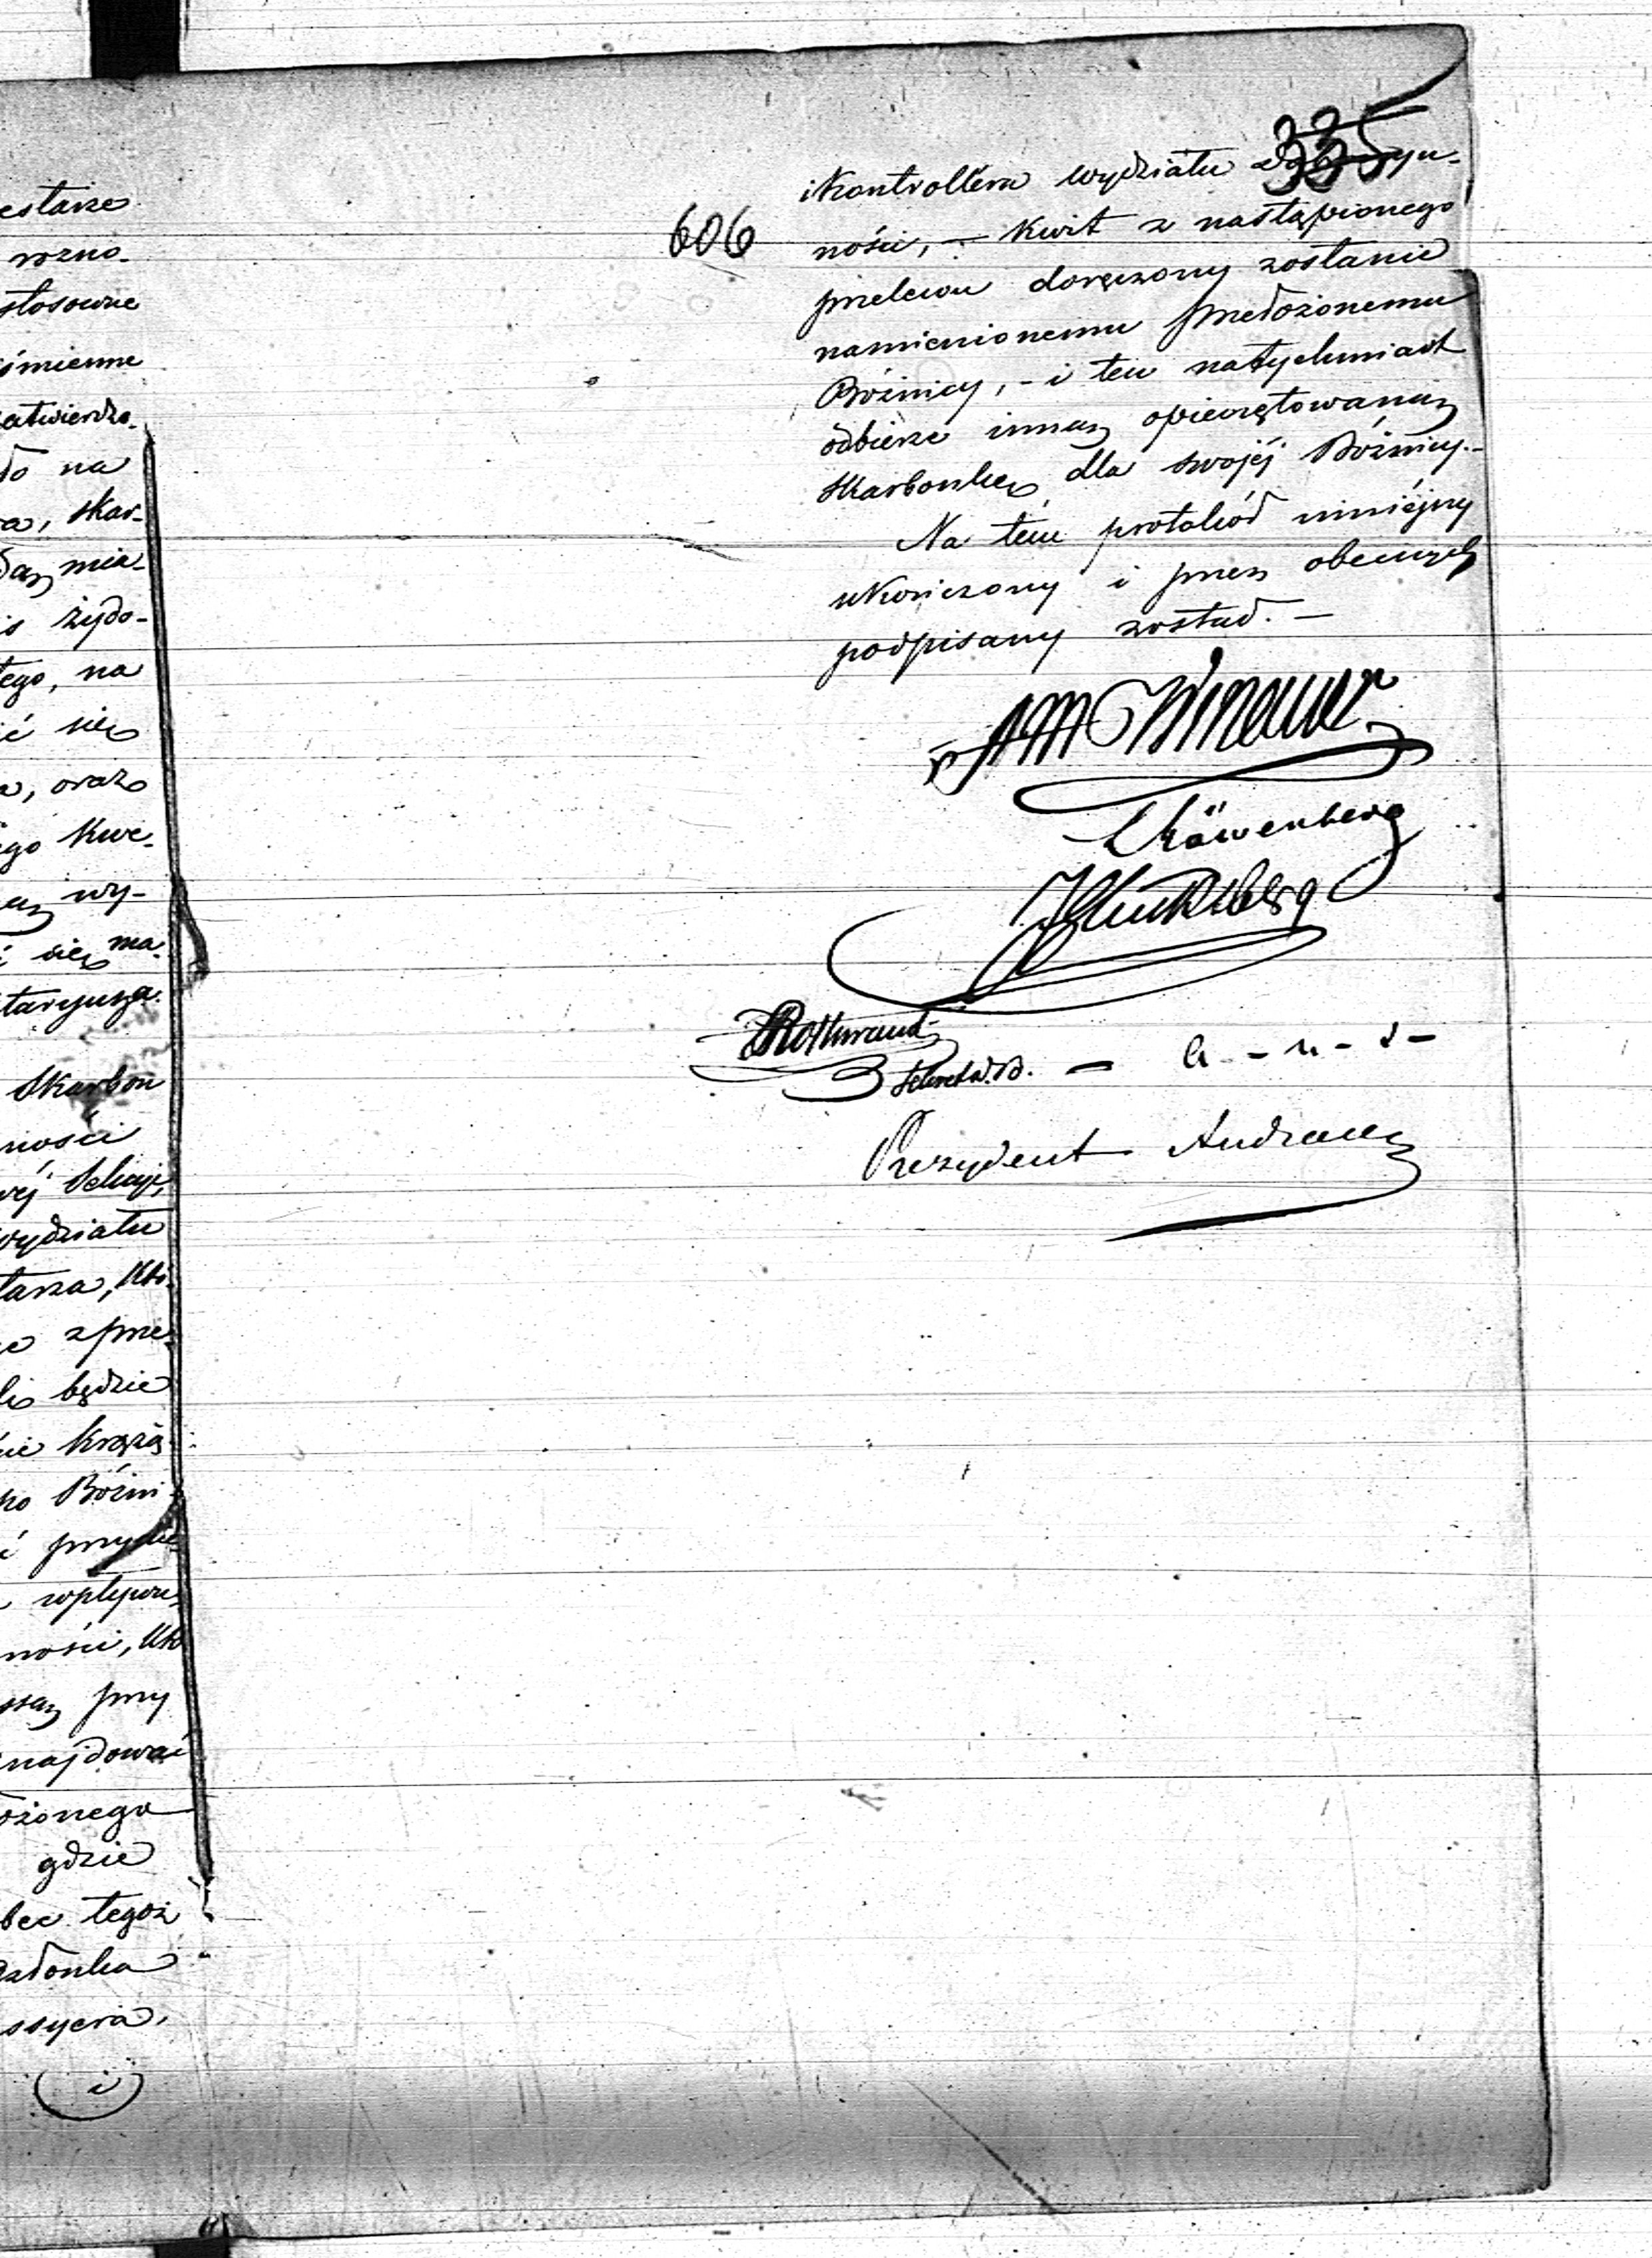 estarze
rozno-
stosowne
śmienne
atwierdzo-
ło na
a, skar-
daą mia-
is żydo-
tego, na
ić się
a, oraz
go kwe-
wy-
i się ma-
taryusza.
Skarbon
ności
wéj
wydziału
tarza, któ-
e z prze-
li będzie
nie krążą-
po Bóźni-
i przy
wpływu
ności, któ
ssą przy
najdować
ożonego
gdzie
bec tegoż
adzonka
ssyera,
i
335
606
i Kontrollera wydziału Dobroczyn-
ności, - Kwit z nastąpionego
przelewu doręczony zostanie
namienionemu przełożonemu
Bóżnicy, - i ten natychmiast
odbierze inną opieczętowaną
Skarbonkę dla swojéj Bóżnicy. -
Na tém protokół niniéjszy
ukończony i przez obecnych
podpisany został. -
M Winawer
Löwenberg
Rothwand
Sekret. W. D. - a - u - s -
Prezydent Andrault